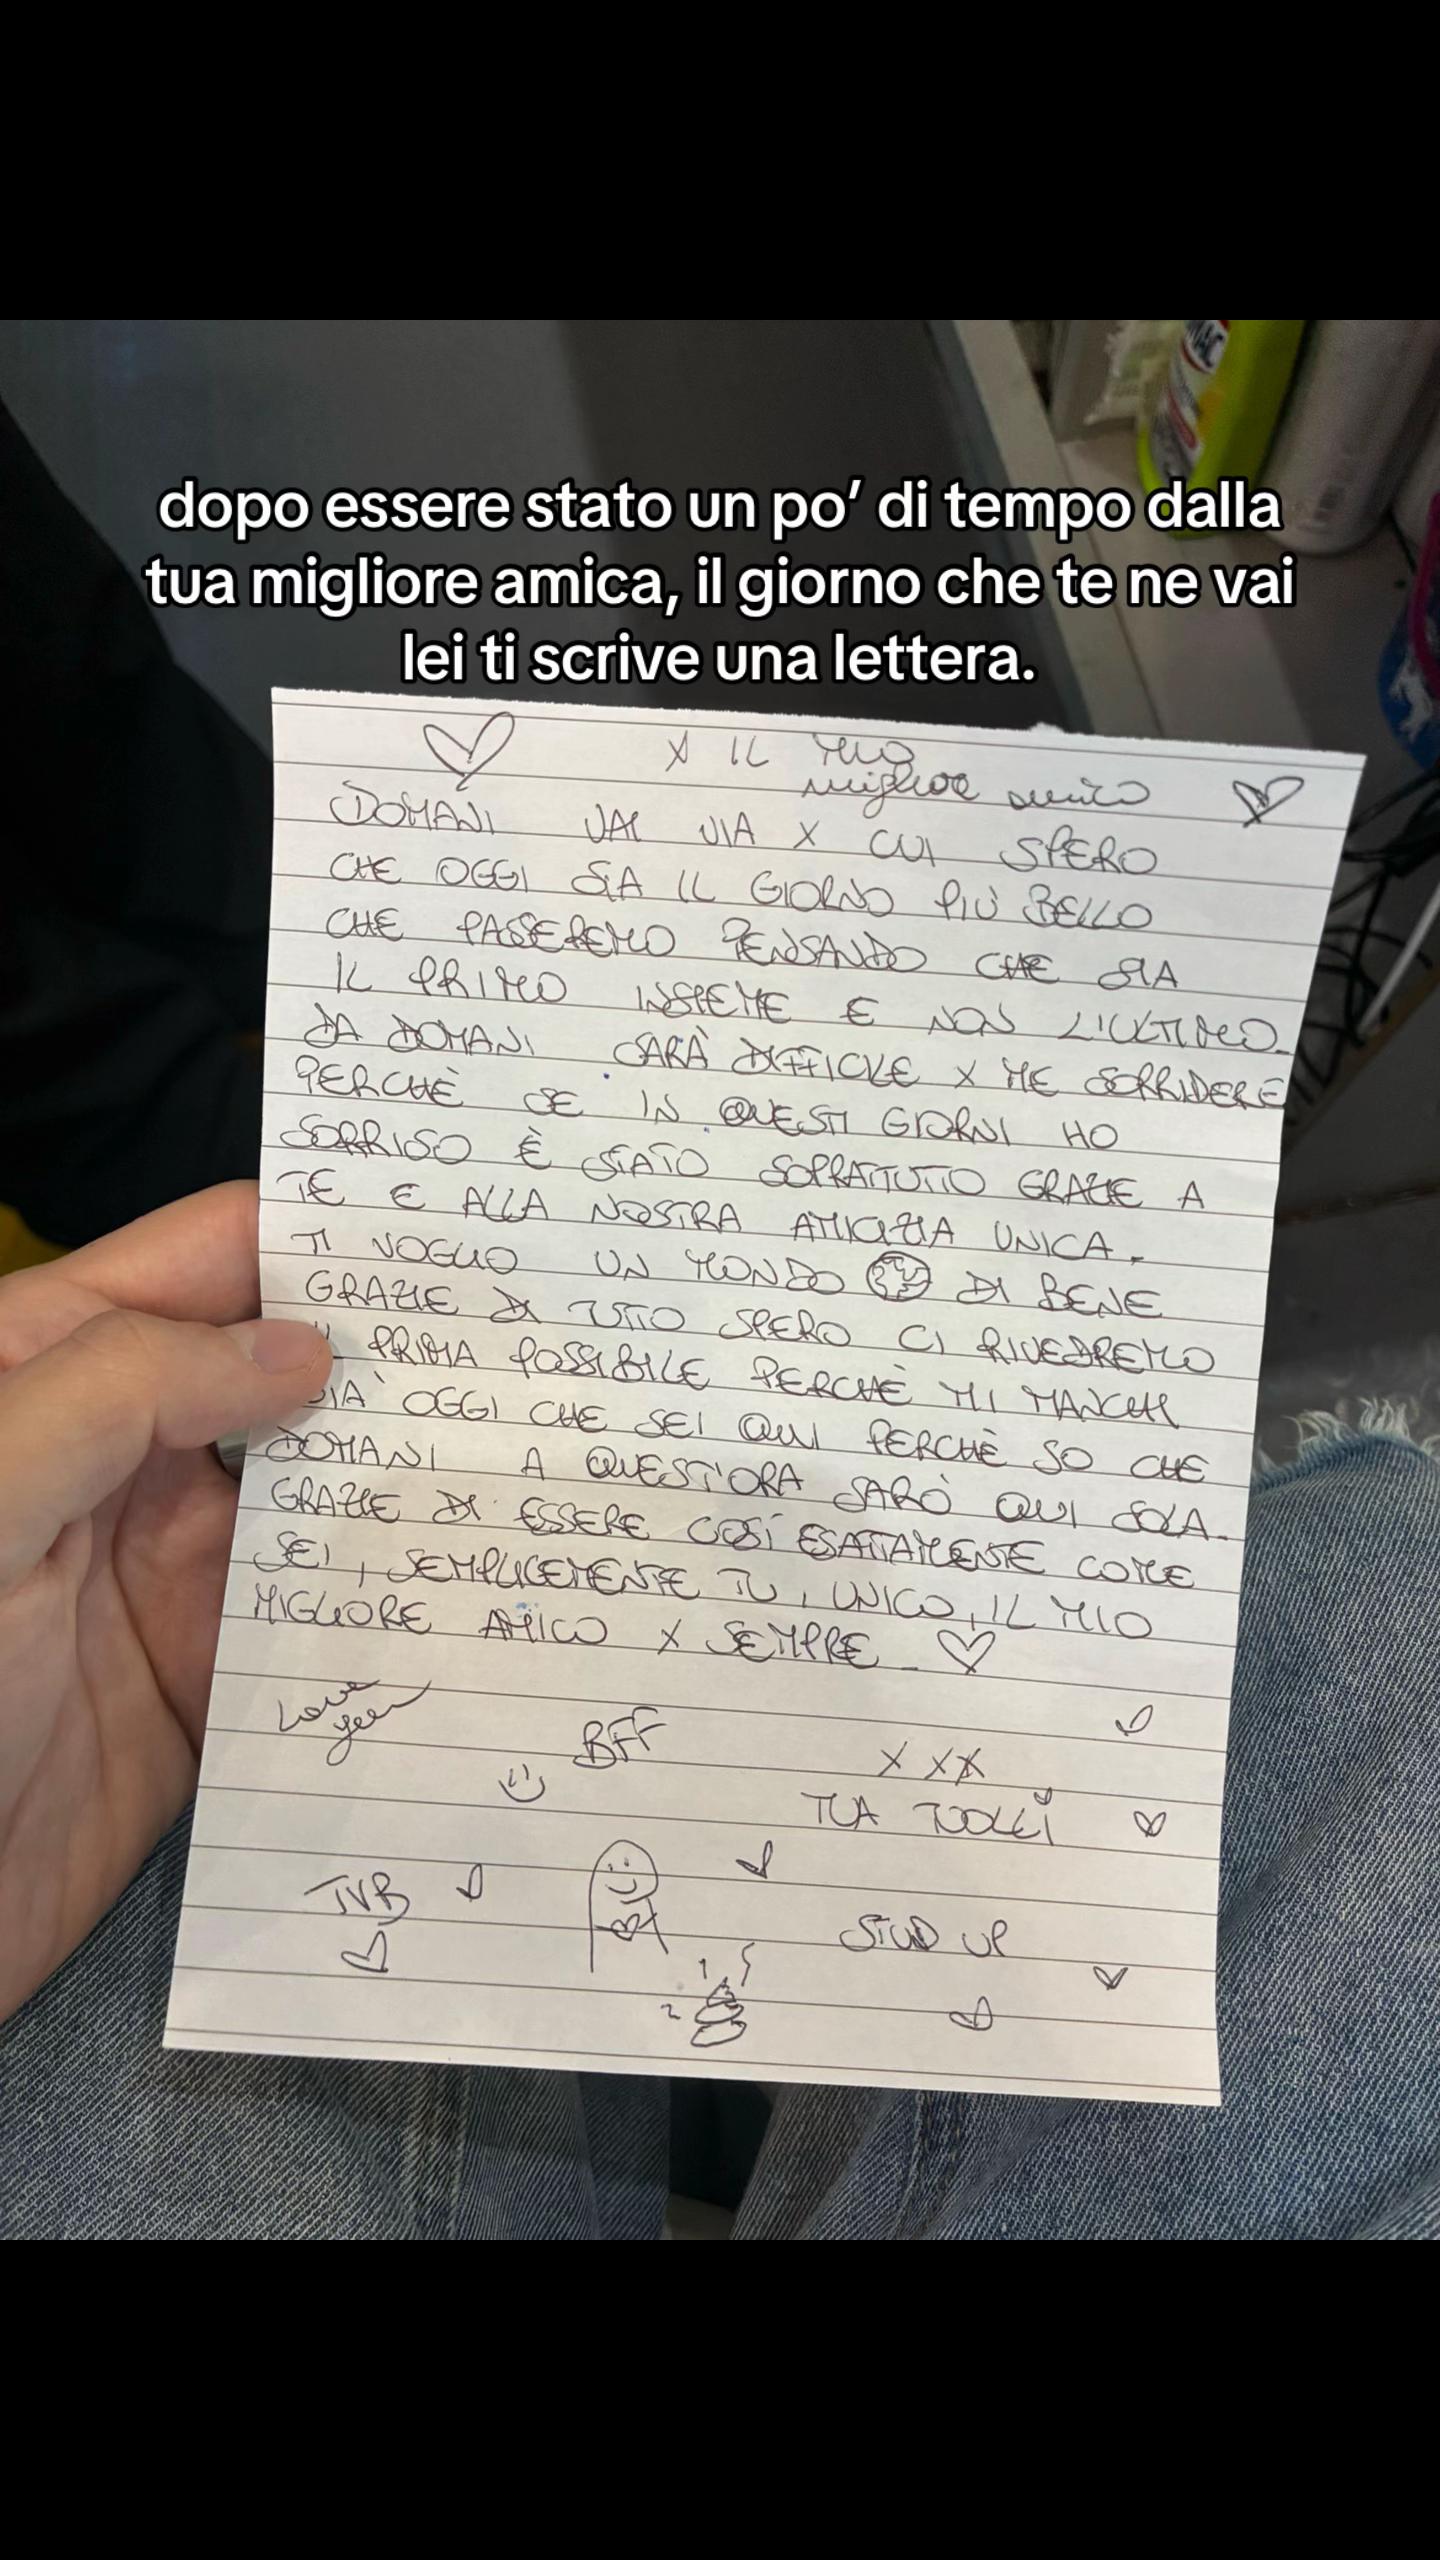 dopo essere stato un po’ di tempo dalla
tua migliore amica, il giorno che te ne vai
lei ti scrive una lettera.
X IL MIO
migliore amico
DOMANI VAI VIA X CUI SPERO
CHE OGGI SIA IL GIORNO PIÙ BELLO
CHE PASSEREMO PENSANDO CHE SIA
IL PRIMO INSIEME E NON L'ULTIMO.
DA DOMANI SARÀ DIFFICILE X ME SORRIDERE
PERCHÈ SE IN QUESTI GIORNI HO
SORRISO È STATO SOPRATTUTTO GRAZIE A
TE E ALLA NOSTRA AMICIZIA UNICA.
TI VOGLIO UN MONDO DI BENE
GRAZIE DI TUTTO SPERO CI RIVEDREMO
PRIMA POSSIBILE PERCHÈ MI MANCHI
GIA' OGGI CHE SEI QUI PERCHÈ SO CHE
DOMANI A QUEST'ORA SARÒ QUI SOLA.
GRAZIE DI ESSERE COSÍ ESATTAMENTE COME
SEI, SEMPLICEMENTE TU, UNICO, IL MIO
MIGLIORE AMICO X SEMPRE.
Love
you
BFF
X X X
TUA
TVB
STUD UP